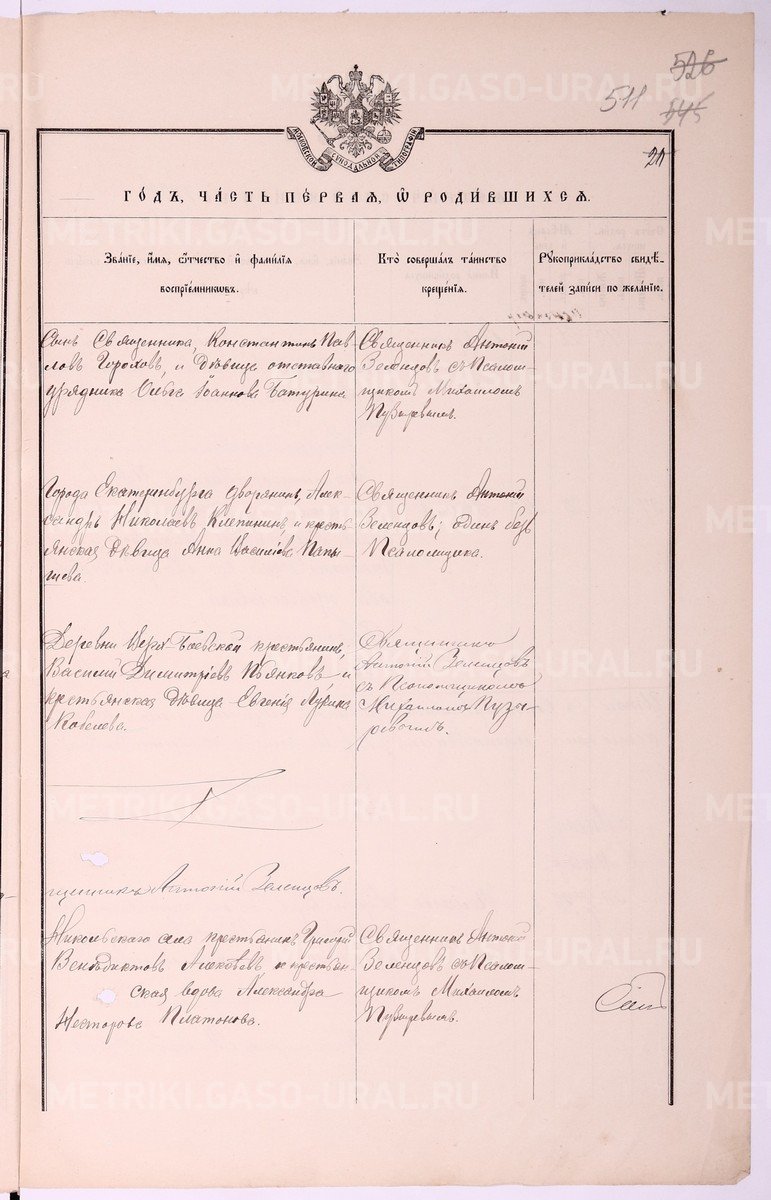 526
511
545
МОСКОВСКОЙ СѴНОДАЛЬНОЙ ТИПОГРАФІИ
ГОДЪ, ЧАСТЬ ПЕРВАЯ, Ѡ РОДИВШИХСЯ.
Званіе, имя, отчество и фамилія
воспріемниковъ.
Кто совершалъ таинство
крещенія.
Рукоприкладство свидѣ-
телей записи по желанію.
Сынъ Священника, Константинъ Пав
ловъ Гороховъ, и дѣвица отставного
урядника Ольга Іоаннова Батурина
Священникъ Антоній
Зеленцовъ съ Псалом-
щикомъ Михаиломъ
Пузыревымъ.
Города Екатеринбурга дворянинъ, Алек-
сандръ Николаевъ Клепининъ, и кресть
янская дѣвица Анна Василіева Папы-
шева.
Священникъ Антоній
Зеленцовъ; одинъ безъ
Псаломщика.
Деревни Верх Боевской крестьянинъ,
Василій Димитріевъ Пьянковъ и
крестьянская дѣвица Евгенія Лукина
Кобелева.
Священникъ
Антоній Зеленцовъ
съ Псаломщикомъ
Михаиломъ Пузы-
ревымъ.
щенникъ Антоній Зеленцовъ.
Никольскаго села крестьянинъ Григорій
Венедиктовъ и крестьян-
ская вдова Александра
Несторова Платонова.
Священникъ Антоній
Зеленцовъ съ Псалом-
щикомъ Михаиломъ
Пузыревымъ.
METRIKI.GASO-URAL.RU